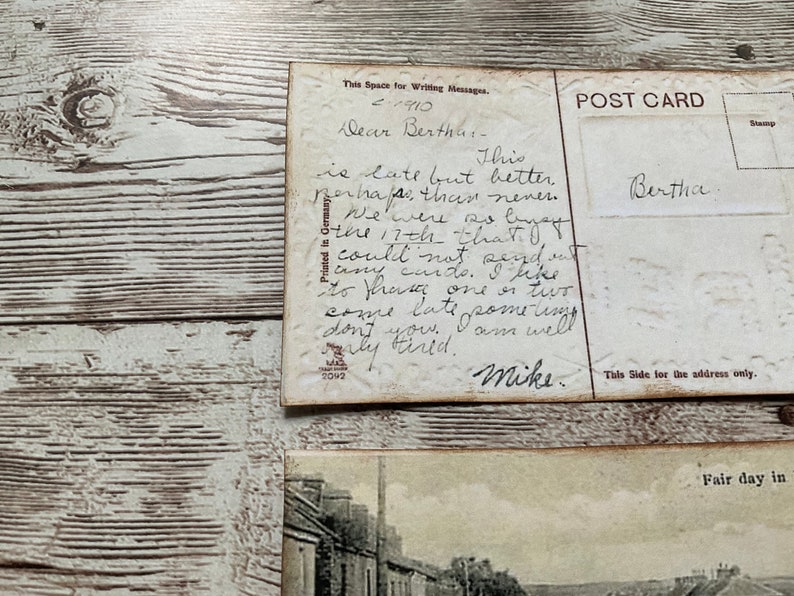 This Space for Writing Messages.
c 1910
Dear Bertha:-
This
is late but better,
perhaps, than never.
We were so busy
the 17th that I
could not send out
any cards. I like
to have one or two
come late sometime
don't you. I am well
only tired.
Mike.
Printed in Germany.
2092
POST CARD
Stamp
Bertha
This Side for the address only.
Fair day in